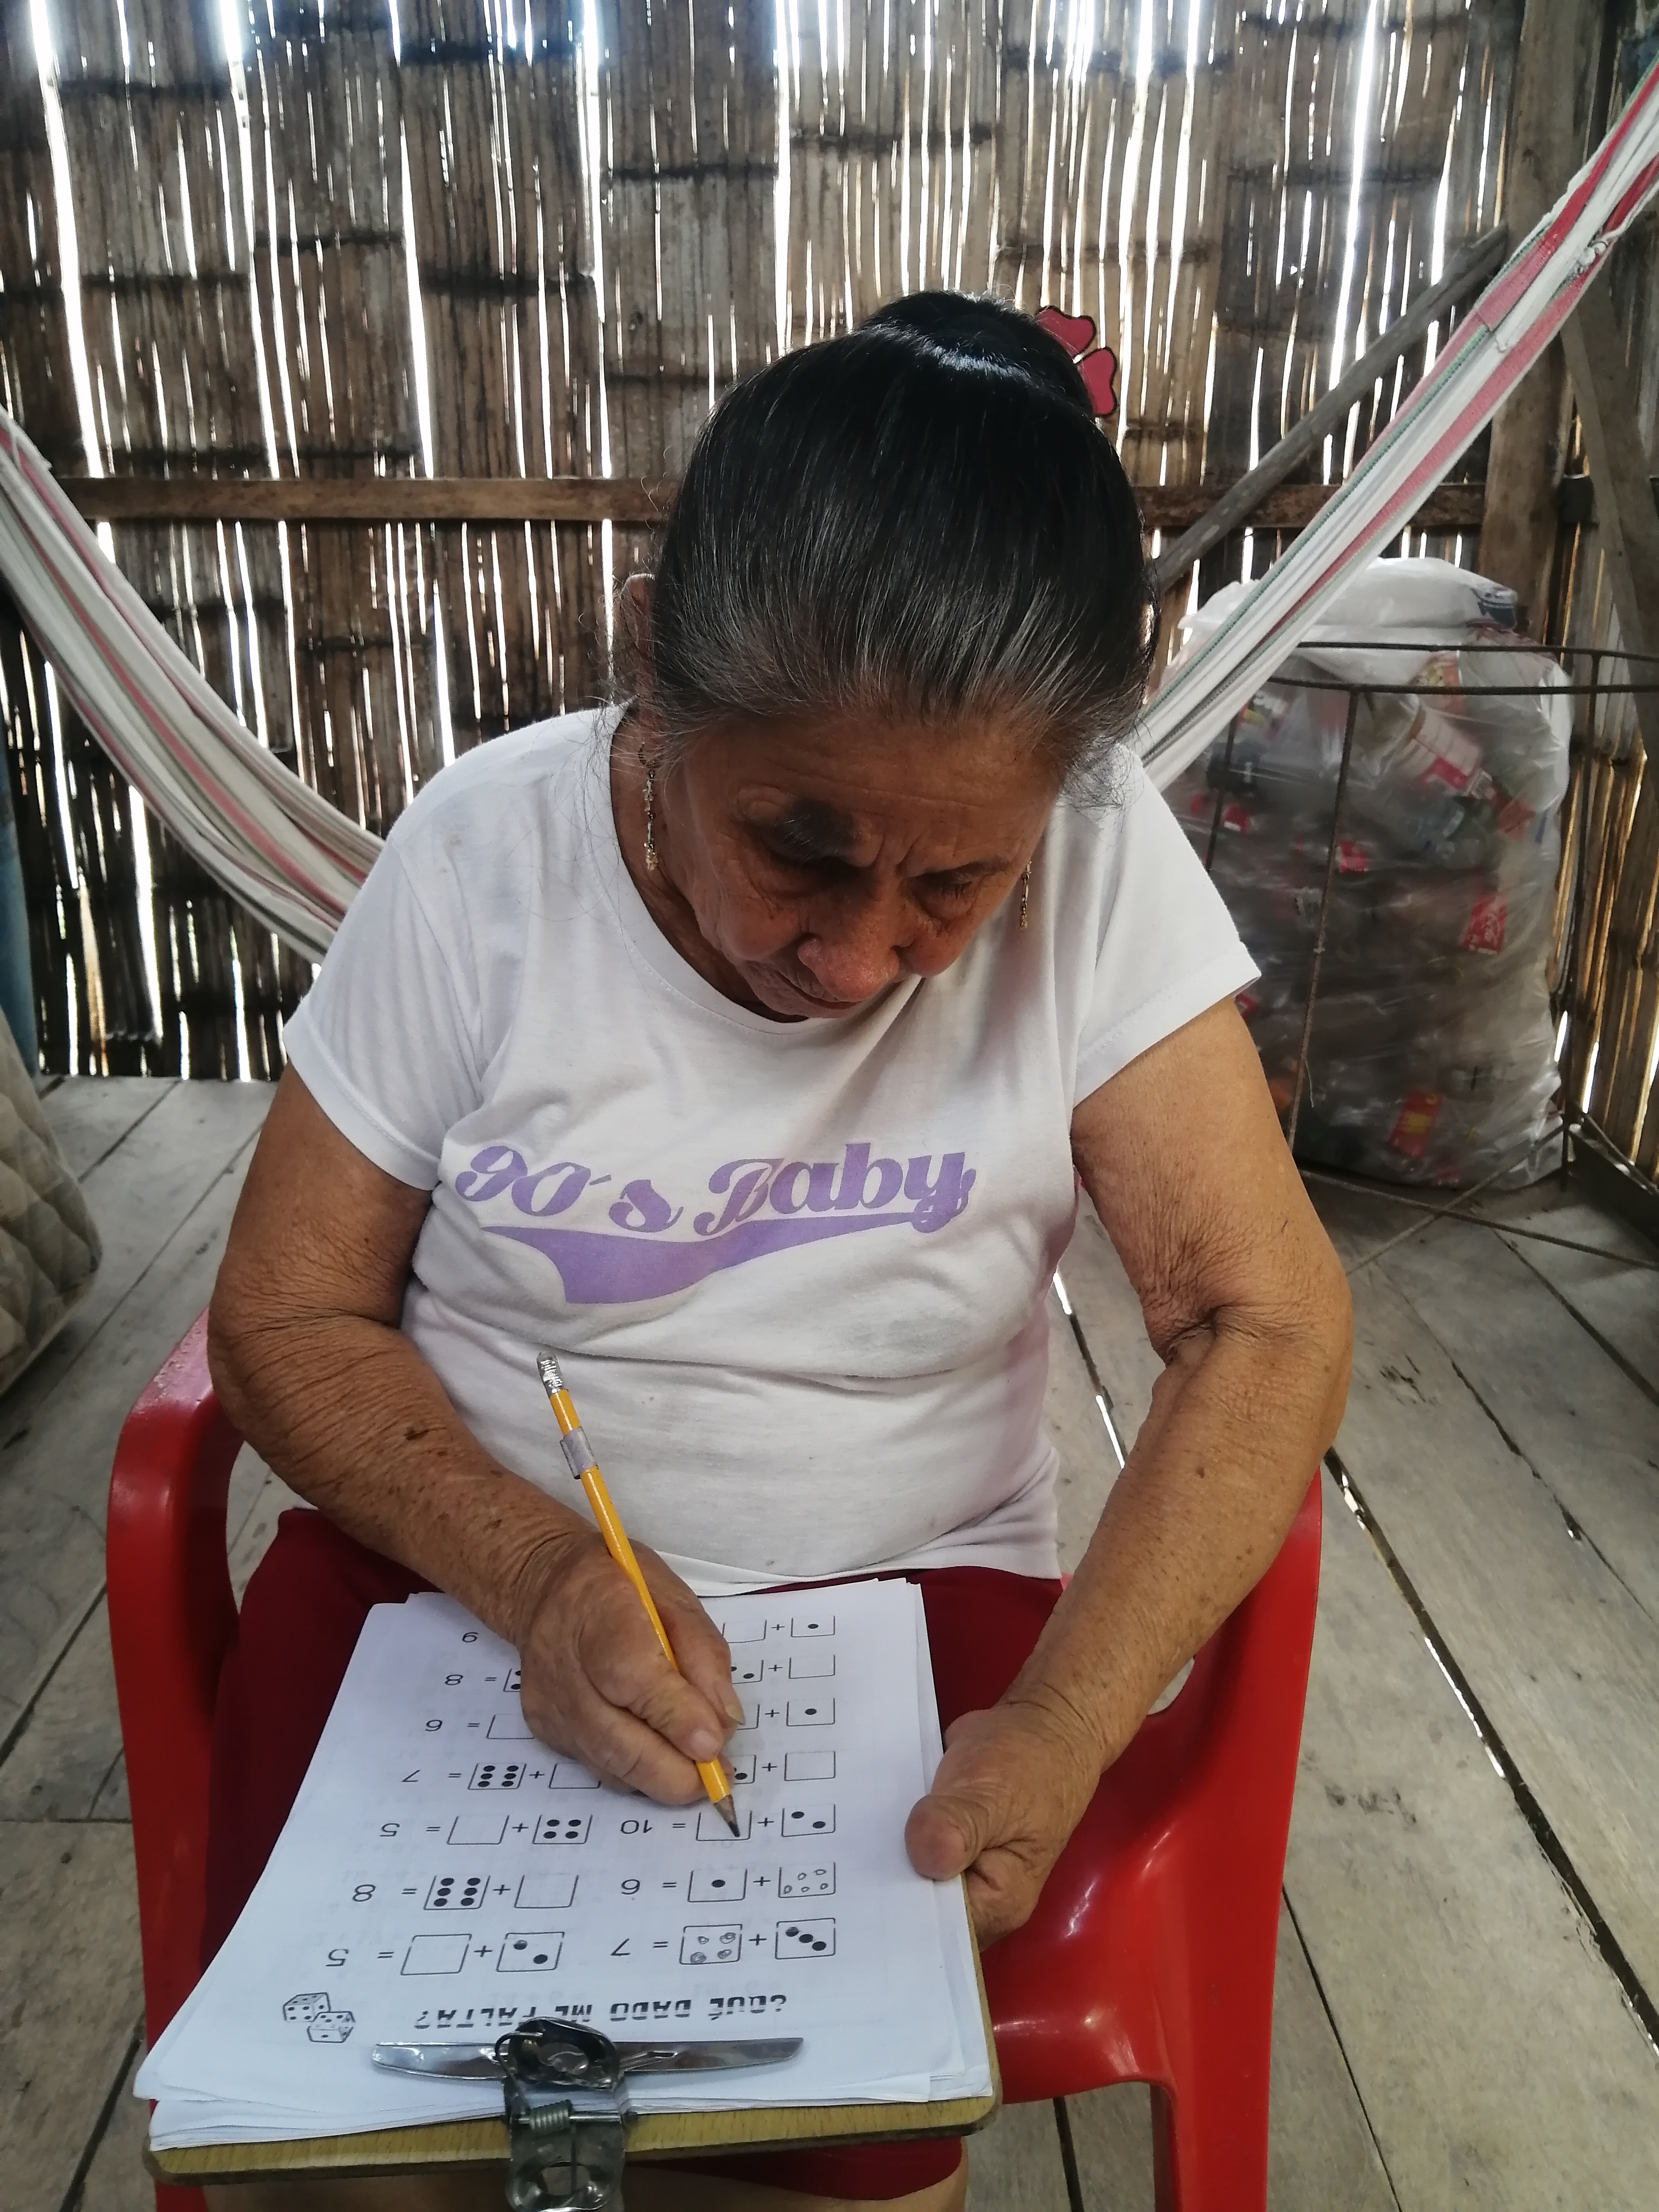 90's Baby
¿QUÉ DADO ME FALTA?
+ = 7 + = 5
+ = 6 + = 8
+ = 10 + = 5
+ + = 7
+ = 6
+ = 8
+ 9